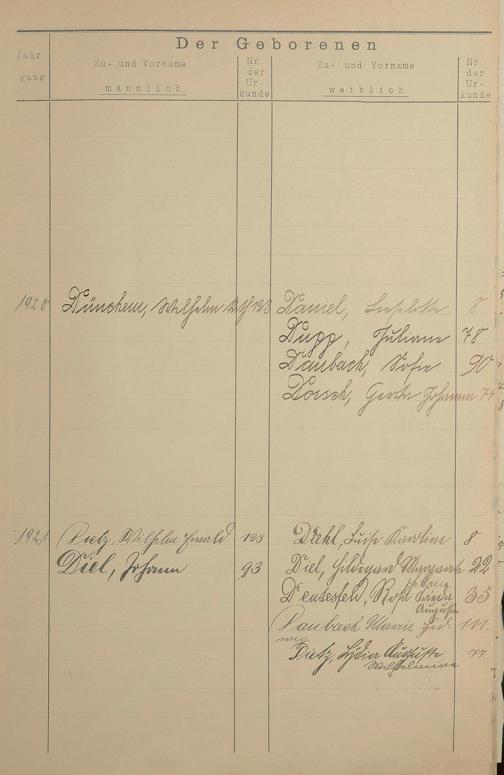 Der Geborenen
Jahrgang
Zu- und Vorname
männlich
Nr. der Urkunde
Zu- und Vorname
weiblich
Nr. der Urkunde
1920 Dünchem, Wilhelm 123 Daniel, Lieselotte 8
Dupp, Juliane 78
Daubach, Sofie 90
Dorsch, Gerta Johanna 74
1921 Dietz, Wilhelm Ewald 123 Diehl, Luise Karoline 8
Diel, Johann 93 Diel, Hildegard Margareta 22
Rosa 35
Auguste
Daubach Marie Hed- 111.
wig
Dietz, Lydia Auguste 77
Wilhelmine